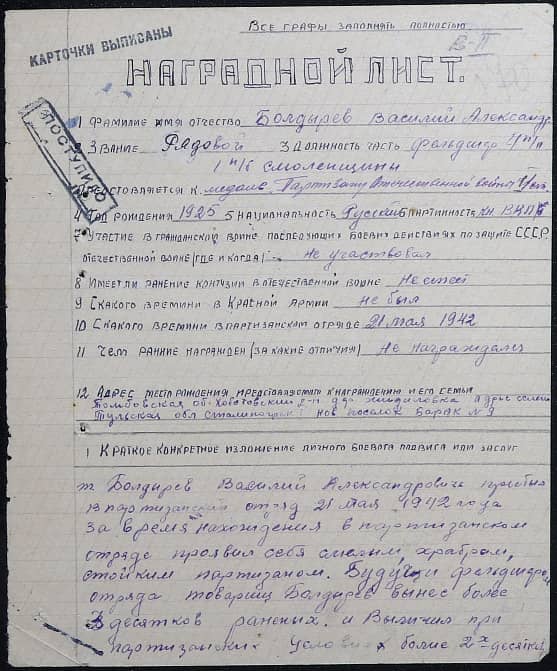 Все графы заполнять полностью
КАРТОЧКИ ВЫПИСАНЫ
В-II
НАГРАДНОЙ ЛИСТ.
ПОСТУПИЛО
1 Фамилие имя отчество Болдырев Василий Александр
2 Звание Рядовой 3 Должность часть фельдшер ч/п/п
1 п/б Смоленщины
Предоставляется к медаль „Партизану Отечественной войны"
4 Год рождения 1925 5 Национальность Русский 6 Партийность чл. ВКПб
7 Участие в гражданской войне последующих боевых действиях по защите СССР
отечественной войне (где и когда) не участвовал
8 Имеет ли ранение контузии в отечественной войне Не имеет
9 С какого времини в Красной Армии не был
10 С какого времини в партизанском отряде 21 мая 1942
11 Чем ранние награжден (за какие отличия) Не награждался
12 Адрес место рождения представляемого к награждению и его семьи
Хоботовский Адрес семьи
Тульская обл Сталиногорск нов поселок Барак № 9
1 Краткое конкретное изложение личного боевого подвига или заслуг
т. Болдырев Василий Александрович прибыл
в партизанский отряд 21 мая 1942 года
За время нахождения в партизанском
отряде проявил себя смелым, храбрым,
стойким партизаном. Будучи фельдшером
отряда товарищ Болдырев вынес более
десятков раненых. и Выличил при
партизанских условиях болие 2х десятков